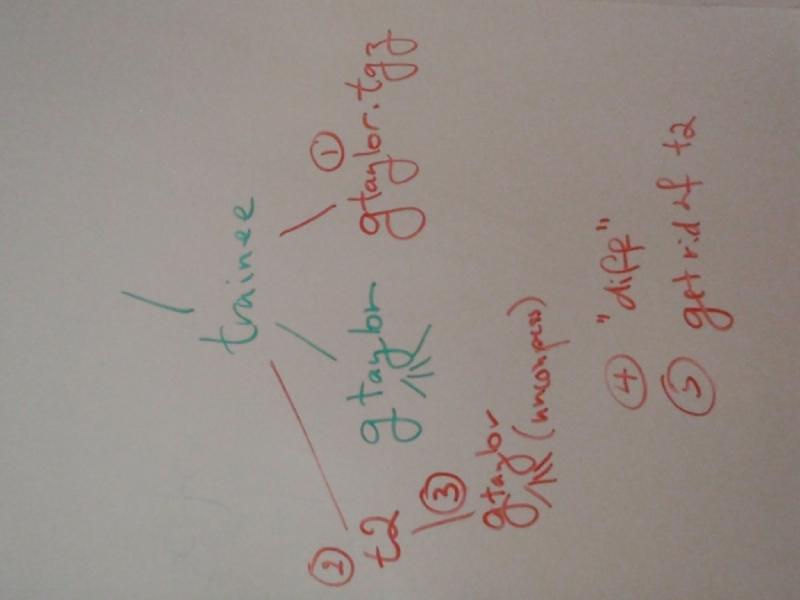 /
trainee
② t2
gtaylor
① gtaylor.tgz
③ gtaylor
(uncompress)
④ "diff"
⑤ get rid of t2